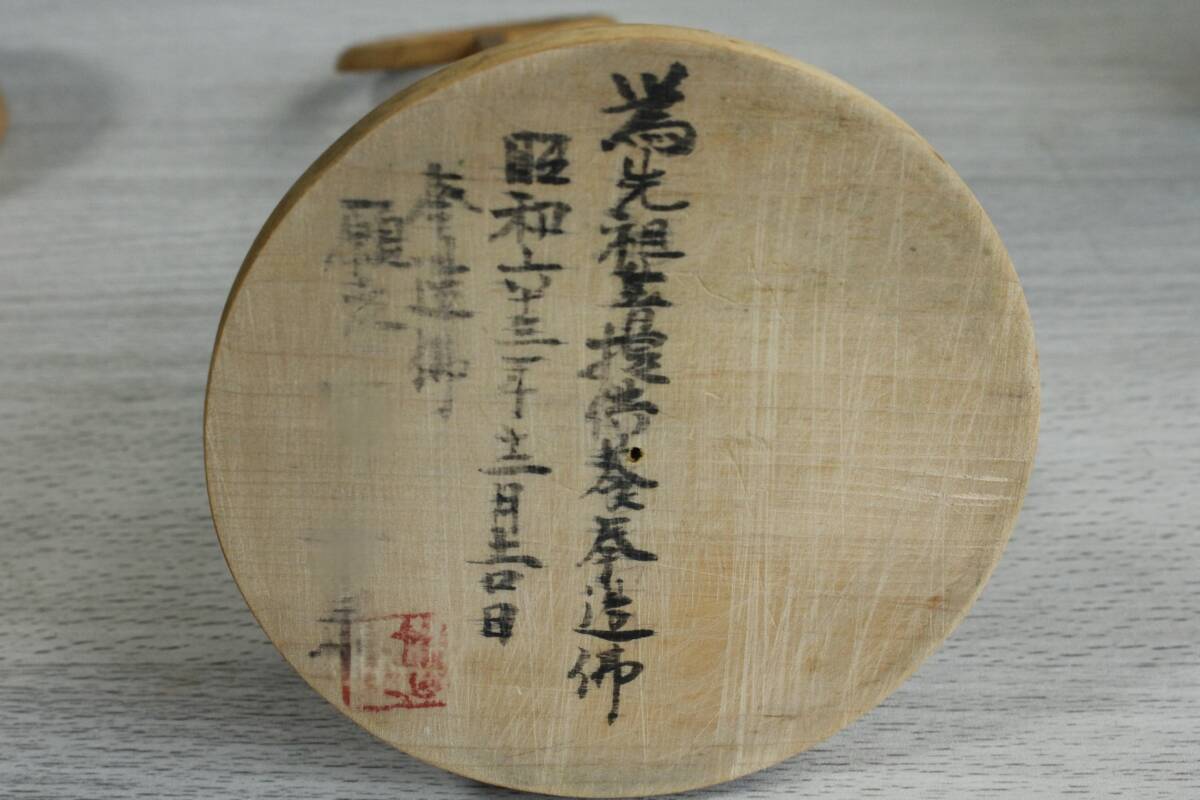 為先祖菩提供養奉造佛
昭和六十三年十二月吉日
奉造佛
願主